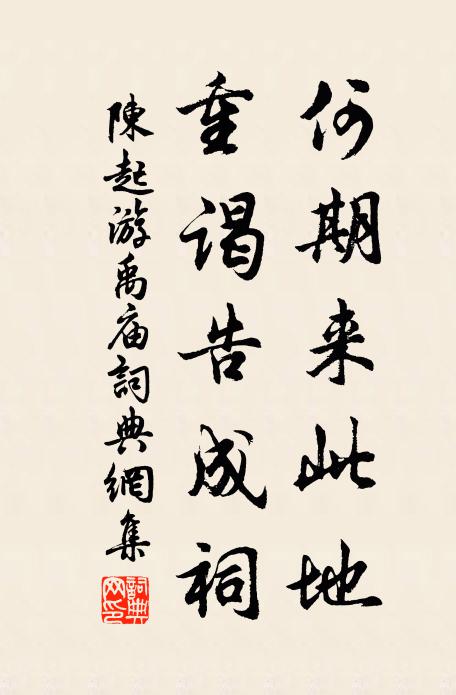 何期来此地
重谒告成祠
陳起游禹庙詞典網集
詞典網印